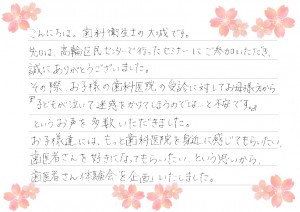 こんにちは。歯科衛生士の大成です。
先日は、高輪区民センターで行ったセミナーにご参加いただき、
誠にありがとうございました。
その際、お子様の歯科医院の受診に対してお母様方から
『子どもが泣いて迷惑をかけてしまうのでは…と不安です。』
というお声を多数いただきました。
お子様達には、もっと歯科医院を身近に感じてもらいたい、
歯医者さんを好きになってもらいたい、という思いから、
歯医者さん体験会を企画いたしました。